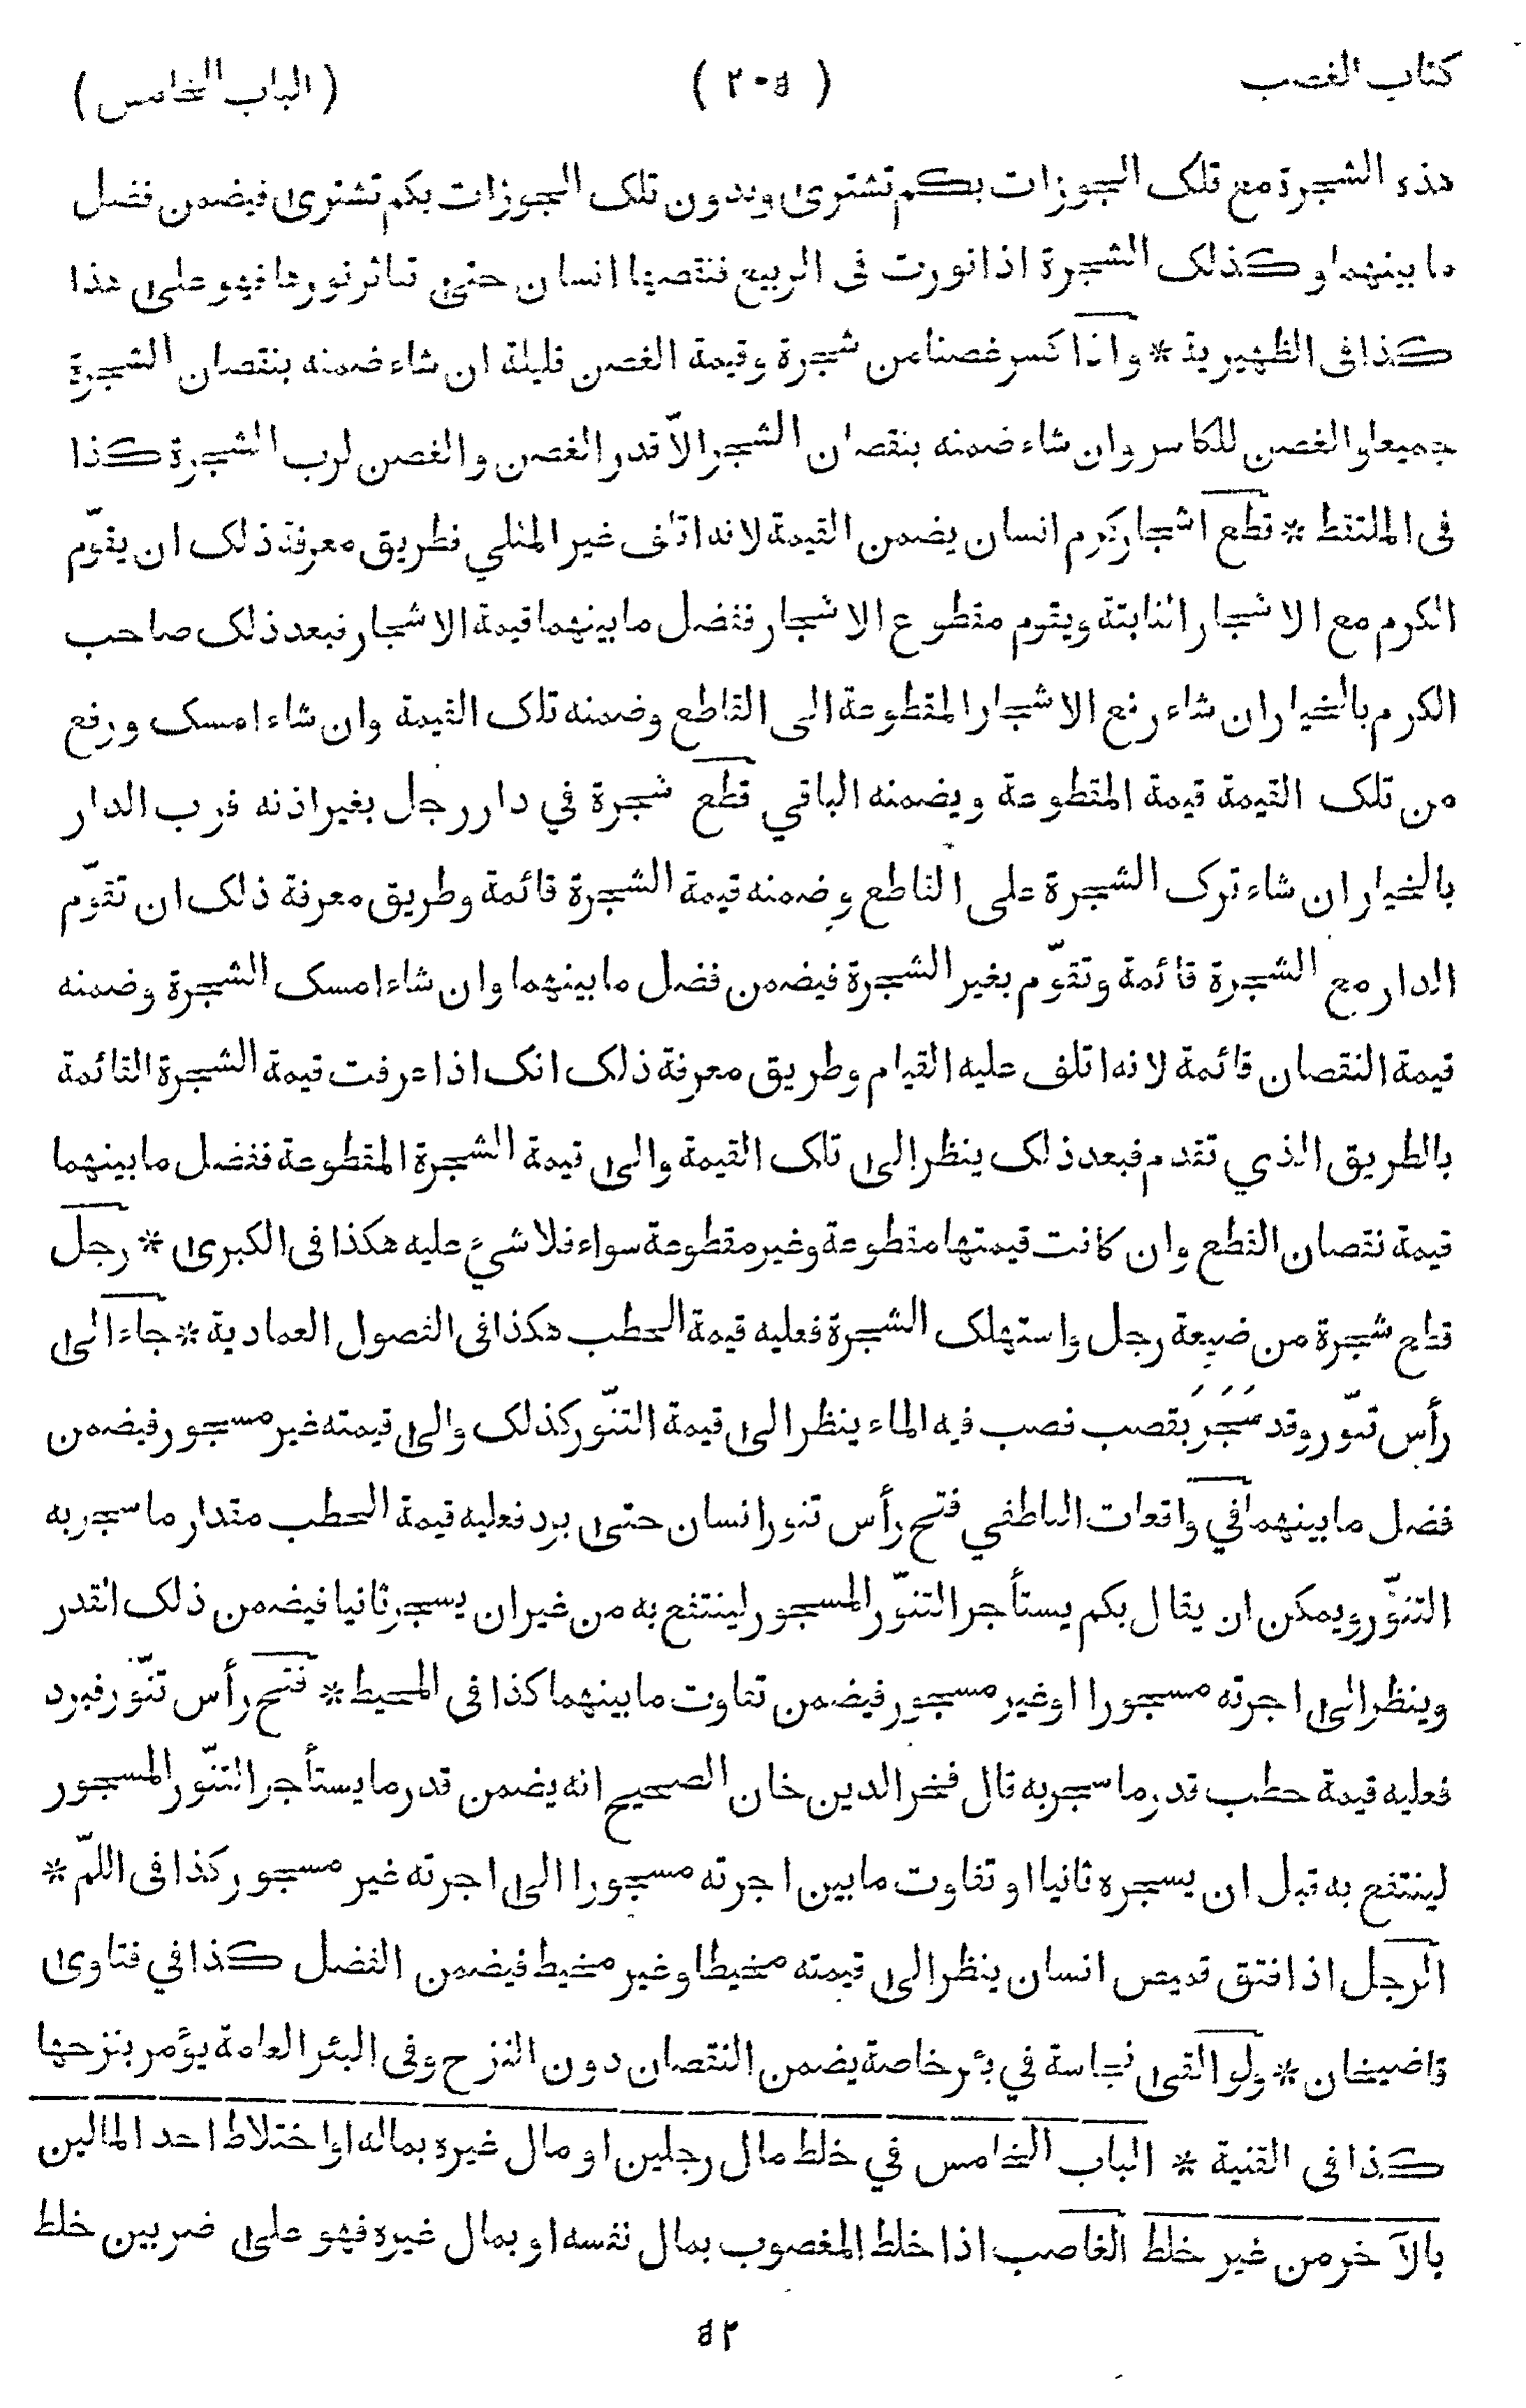 كتاب الغصب (٢٠٥) (الباب الخامس)
هذه الشجرة مع تلك الجوزات بكم تشترى وبدون تلك الجوزات بكم تشترى فيضمن فضل
ما بينهما وكذلك الشجرة اذا نورت فى الربيع فنقصها انسان حتى تناثر نورها فهو على هذا
كذا فى الظهيرية * واذا كسر غصنا من شجرة وقيمة الغصن قليلة ان شاء ضمنه بنقصان الشجرة
جميعا والغصن للكاسر وان شاء ضمنه بنقصان الشجر الّا قدر الغصن والغصن لرب الشجرة كذا
فى الملتقط * قطع اشجار كرم انسان يضمن القيمة لانه اتلف غير المثلي فطريق معرفة ذلك ان يقوّم
الكرم مع الاشجار النابتة ويقوم مقطوع الاشجار ففضل ما بينهما قيمة الاشجار فبعد ذلك صاحب
الكرم بالخيار ان شاء رفع الاشجار المقطوعة الى القاطع وضمنه تلك القيمة وان شاء امسك ورفع
من تلك القيمة قيمة المقطوعة ويضمنه الباقي قطع شجرة في دار رجل بغير اذنه فرب الدار
بالخيار ان شاء ترك الشجرة على القاطع وضمنه قيمة الشجرة قائمة وطريق معرفة ذلك ان تقوّم
الدار مع الشجرة قائمة وتقوّم بغير الشجرة فيضمن فضل ما بينهما وان شاء امسك الشجرة وضمنه
قيمة النقصان قائمة لانه اتلف عليه القيام وطريق معرفة ذلك انك اذا عرفت قيمة الشجرة القائمة
بالطريق الذي تقدم فبعد ذلك ينظر الى تلك القيمة والى قيمة الشجرة المقطوعة ففضل ما بينهما
قيمة نقصان القطع وان كانت قيمتها مقطوعة وغير مقطوعة سواء فلا شيء عليه هكذا فى الكبرى * رجل
قطع شجرة من ضيعة رجل واستهلك الشجرة فعليه قيمة الحطب هكذا فى الفصول العمادية * جاء الى
رأس تنّور وقد سَجَرَ بقصب فصب فيه الماء ينظر الى قيمة التنّور كذلك والى قيمته غير مسجور فيضمن
فضل ما بينهما في واقعات الناطفي فتح رأس تنور انسان حتى برد فعليه قيمة الحطب مقدار ما سجر به
التنوّر ويمكن ان يقال بكم يستأجر التنوّر المسجور لينتفع به من غير ان يسجر ثانيا فيضمن ذلك القدر
وينظر الى اجرته مسجورا او غير مسجور فيضمن تفاوت ما بينهما كذا فى المحيط * فتح رأس تنّور فبرد
فعليه قيمة حطب قدر ما سجر به قال فخر الدين خان الصحيح انه يضمن قدر ما يستأجر التنّور المسجور
لينتفع به قبل ان يسجره ثانيا او تفاوت ما بين اجرته مسجورا الى اجرته غير مسجور كذا فى اللمّ *
الرجل اذا فتق قميص انسان ينظر الى قيمته مخيطا وغير مخيط فيضمن الفضل كذا في فتاوى
قاضيخان * ولو القى نجاسة في بئر خاصة يضمن النقصان دون النزح وفى البئر العامة يؤمر بنزحها
كذا فى القنية * الباب الخامس في خلط مال رجلين او مال غيره بماله او اختلاط احد المالين
بالآخر من غير خلط الغاصب اذا خلط المغصوب بمال نفسه او بمال غيره فهو على ضربين خلط
٥٢